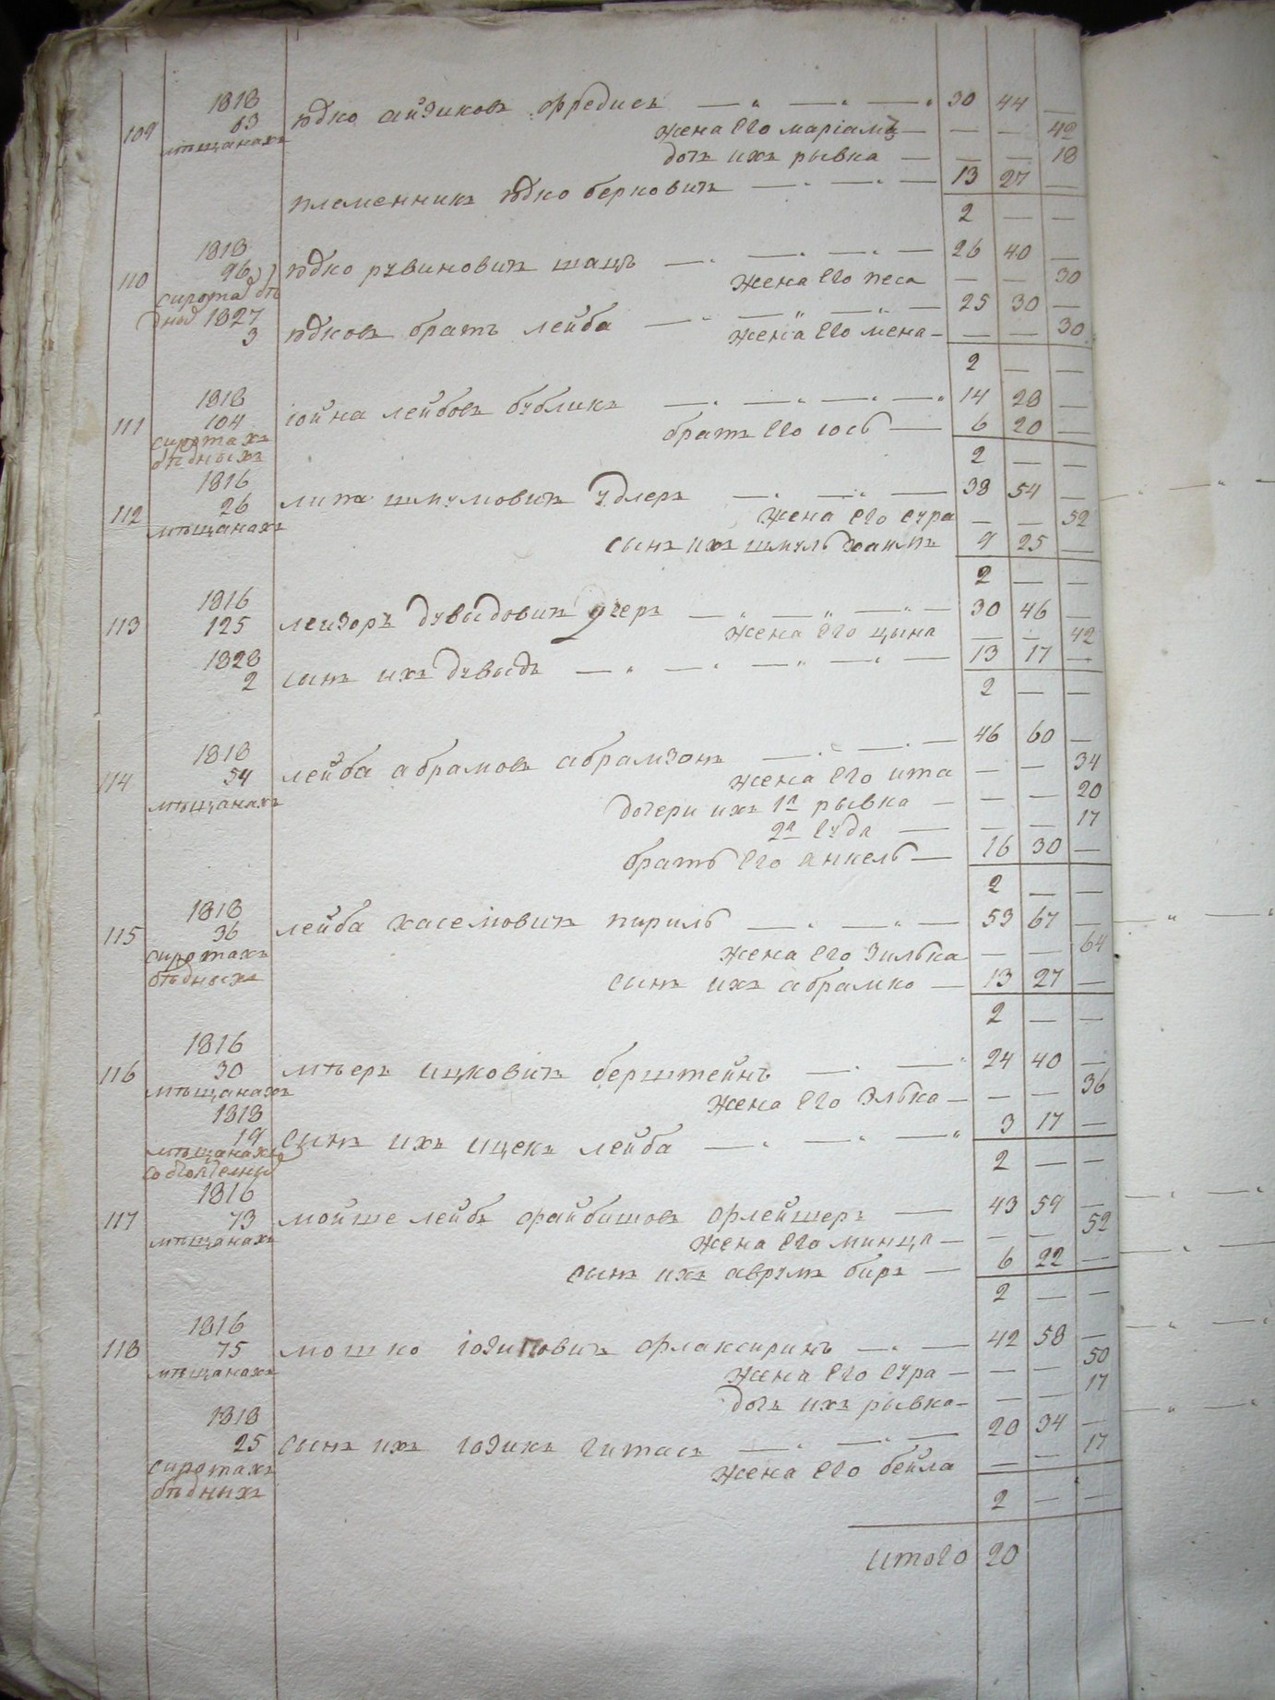 109 1818 63 мѣщанахъ Юдко Айзиковъ Фредисъ — — — 30 44 —
жена Его Маріамъ — — — 42
дочь ихъ рывка — — — 18
племенникъ Юдко берковичъ — — — 13 27 —
2 — —
110 1818 96 Юдко рувиновичъ шацъ — — — 26 40 —
сирота бѣдныхъ жена Его песа — — 30
1827 3 Юдковъ братъ лейба — — — 25 30 —
жена Его мена — — — 30
2 — —
111 1818 104 Іойна лейбовъ бубликъ — — — 14 28 —
сиротахъ бѣдныхъ братъ Его Іось — 6 20 —
2 — —
112 1816 26 мѣщанахъ липа шмуловичъ удлеръ — — — 38 54 —
жена Его сура — — 52
сынъ ихъ шмуль хаимъ 9 25 —
2 — —
113 1816 125 лейзоръ дувыдовичъ — — — 30 46 —
жена Его цына — — 42
1828 2 сынъ ихъ дувыдъ — — — — — 13 17 —
2 — —
114 1818 54 мѣщанахъ лейба абрамовъ абрамзонъ — — — 46 60 —
жена Его ита — — 34
дочери ихъ 1я рывка — — — 20
2я Еуда — — — 17
братъ Его Янкель — 16 30 —
2 — —
115 1818 36 лейба хасемовичъ париль — — — 53 67 —
сиротахъ бѣдныхъ жена Его Зилька — — 64
сынъ ихъ абрамко — 13 27 —
2 — —
116 1816 30 мѣщанахъ мѣеръ ицковичъ берштейнъ — — 24 40 —
жена Его Элька — — — 36
1818 19 мѣщанахъ сынъ ихъ ицекъ лейба — — — 3 17 —
2 — —
117 1816 73 мѣщанахъ мойше лейбъ файбишовъ флейшеръ — 43 59 —
жена Его минца — — — 52
сынъ ихъ аврумъ биръ — 6 22 —
2 — —
118 1816 75 мѣщанахъ мошко Іозиповичъ флаксиринъ — — 42 58 —
жена Его сура — — — 50
дочь ихъ рывка — — — 17
1818 25 сынъ ихъ Іозикъ гитась — — — 20 34 —
сиротахъ бѣдныхъ жена Его бейла — — 17
2 — —
итого 20